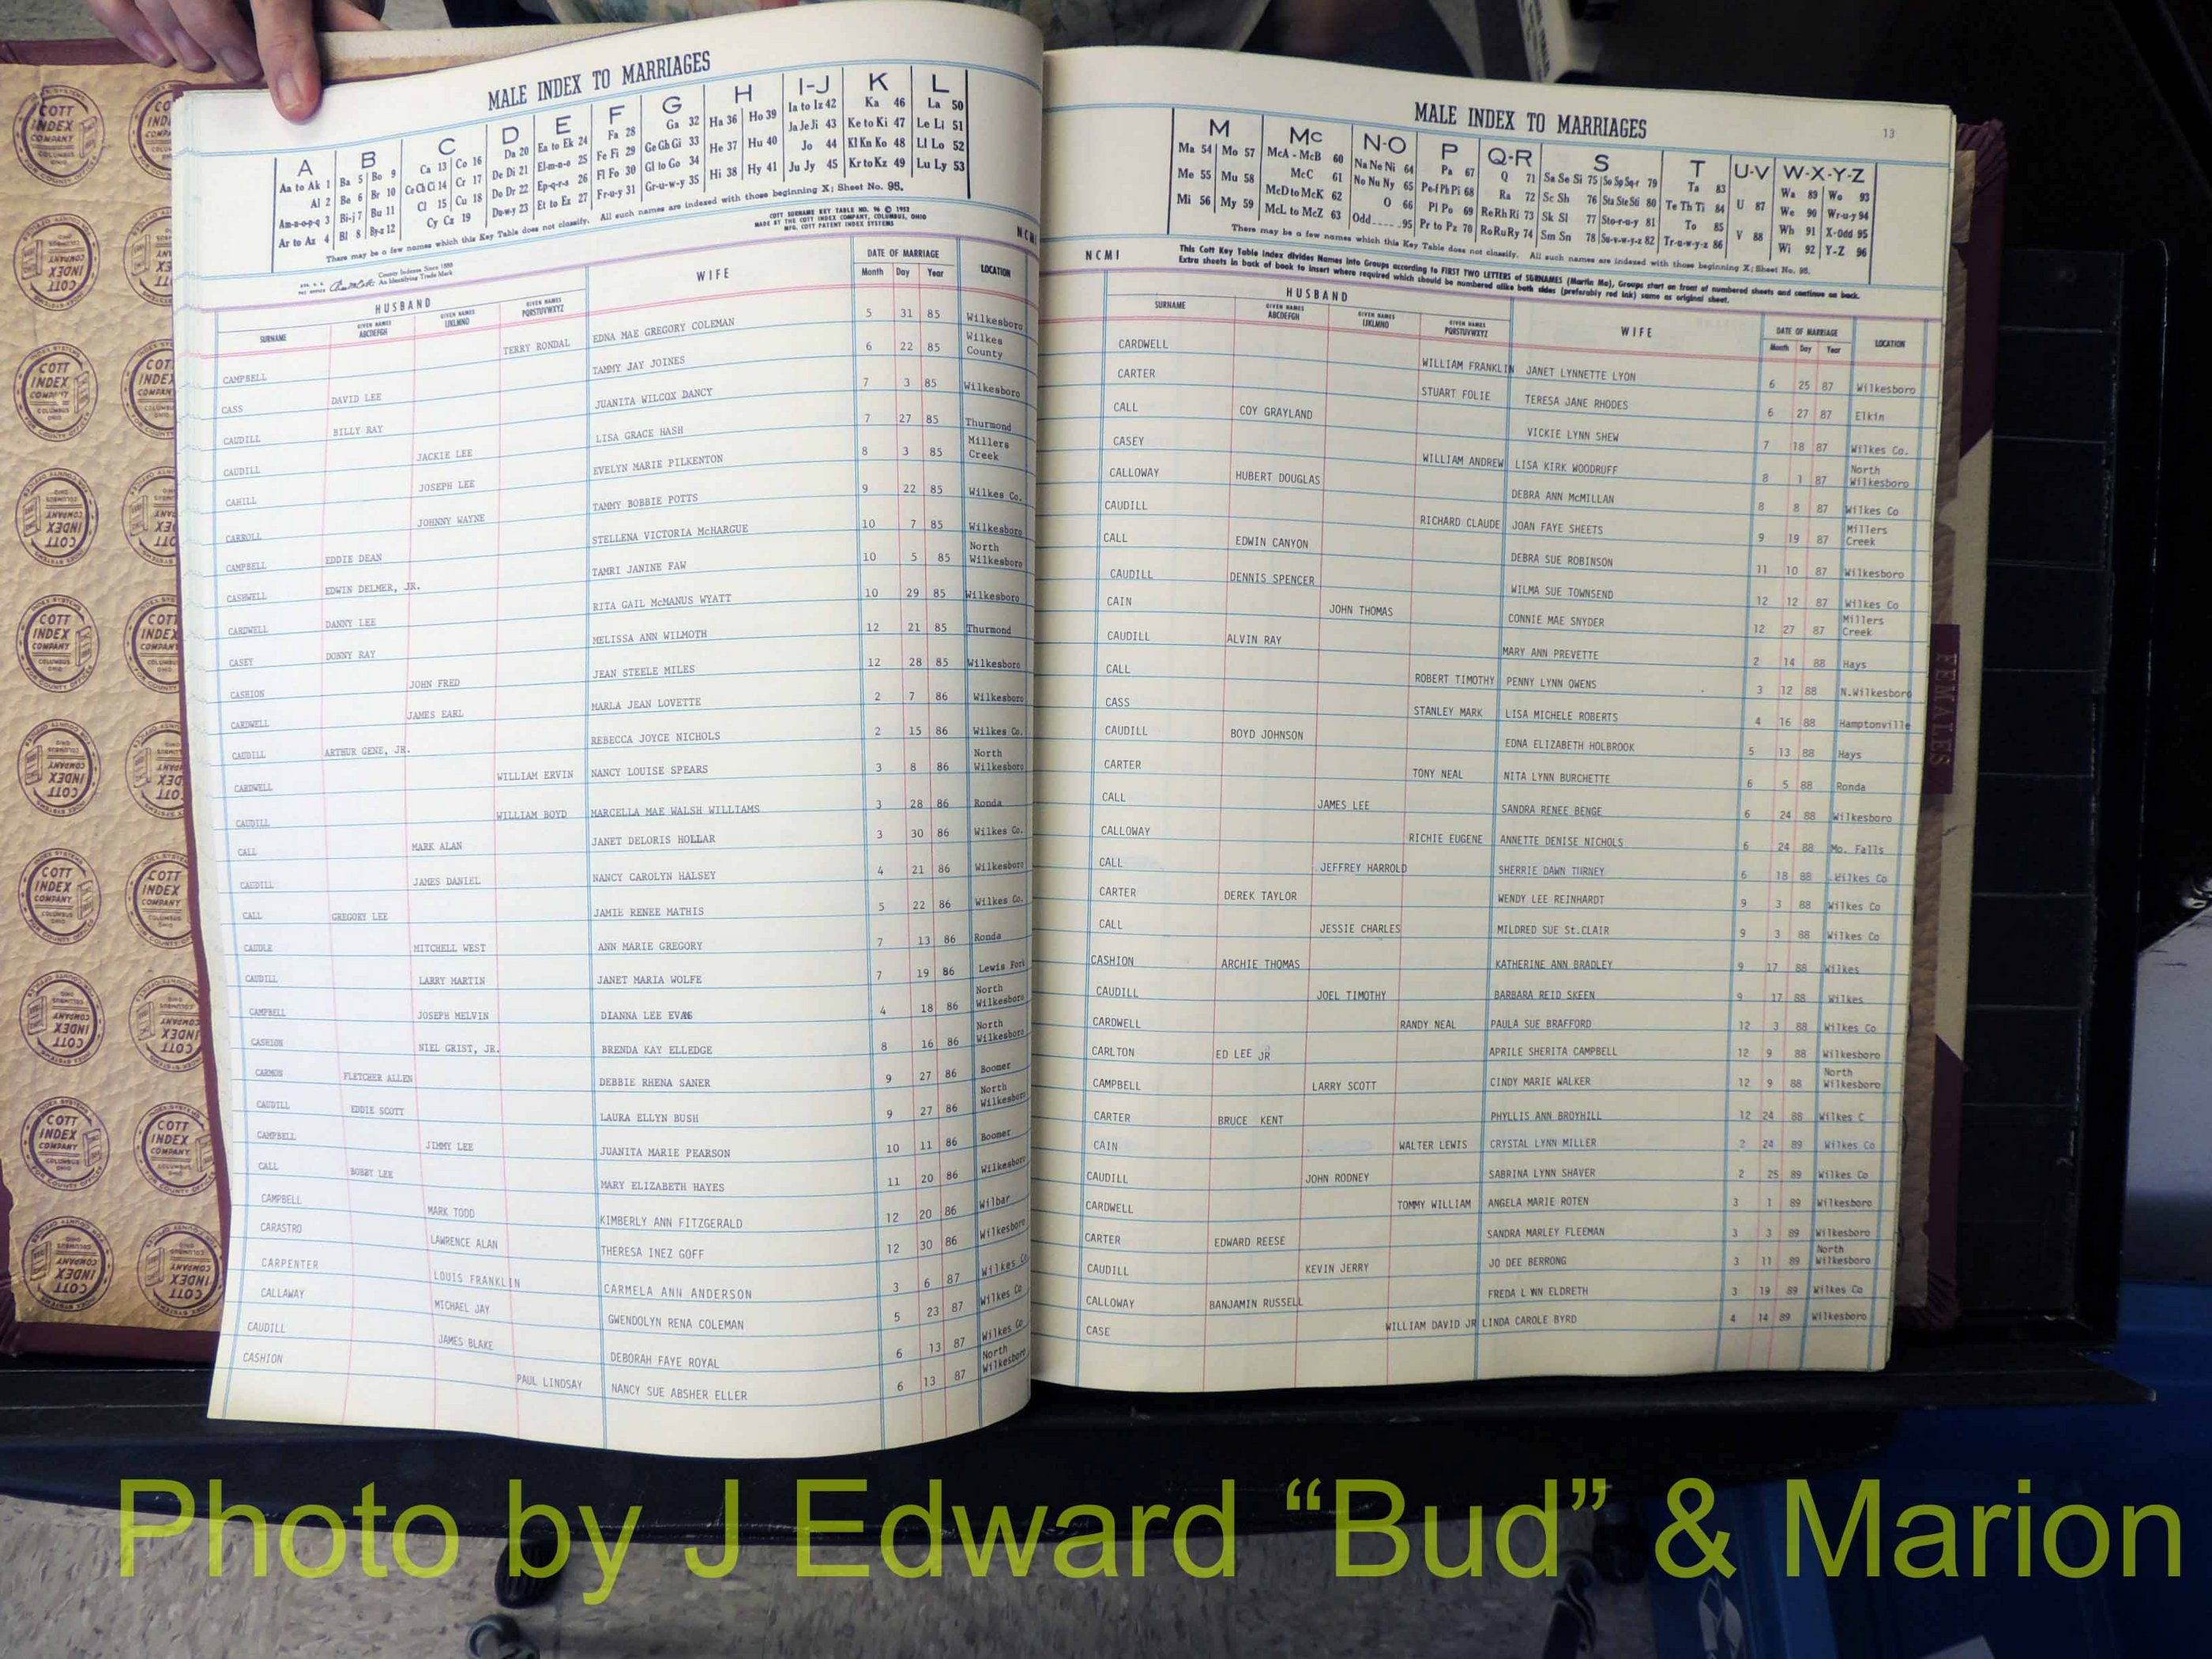 MALE INDEX TO MARRIAGES
A B C D E F G H I-J K L
Aa to Ak 1 Ba 5 Bo 9 Ca 13 Co 16 Da 20 Ea to Ek 24 Fa 28 Ga 32 Ha 36 Ho 39 Ia to Iz 42 Ka 46 La 50
Al 2 Be 6 Br 10 Ce Ch Ci 14 Cr 17 De Di 21 El-m-n-o 25 Fe Fi 29 Ge Gh Gi 33 He 37 Hu 40 Ja Je Ji 43 Ke to Ki 47 Le Li 51
Am-n-o-p-q 3 Bi-j 7 Bu 11 Cl 15 Cu 18 Do Dr 22 Ep-q-r-s 26 Fl Fo 30 Gl to Go 34 Hi 38 Hy 41 Jo 44 Kl Kn Ko 48 Ll Lo 52
Ar to Az 4 Bl 8 By-z 12 Cy Cz 19 Du-w-y 23 Et to Ez 27 Fr-u-y 31 Gr-u-w-y 35 Ju Jy 45 Kr to Kz 49 Lu Ly 53
There may be a few names which this Key Table does not classify. All such names are indexed with those beginning X; Sheet No. 95.
COTT SURNAME KEY TABLE NO. 96 © 1952
MADE BY THE COTT INDEX COMPANY, COLUMBUS, OHIO
MFG. COTT PATENT INDEX SYSTEMS
County Indexes Since 1888
An Identifying Trade Mark
NCMI
HUSBAND WIFE DATE OF MARRIAGE LOCATION
SURNAME GIVEN NAMES ABCDEFGH GIVEN NAMES IJKLMNO GIVEN NAMES PQRSTUVWXYZ Month Day Year
CAMPBELL TERRY RONDAL EDNA MAE GREGORY COLEMAN 5 31 85 Wilkesboro
CASS DAVID LEE TAMMY JAY JOINES 6 22 85 Wilkes County
CAUDILL BILLY RAY JUANITA WILCOX DANCY 7 3 85 Wilkesboro
CAUDILL JACKIE LEE LISA GRACE HASH 7 27 85 Thurmond
CAHILL JOSEPH LEE EVELYN MARIE PILKENTON 8 3 85 Millers Creek
CARROLL JOHNNY WAYNE TAMMY BOBBIE POTTS 9 22 85 Wilkes Co.
CAMPBELL EDDIE DEAN STELLENA VICTORIA McHARGUE 10 7 85 Wilkesboro
CASHWELL EDWIN DELMER, JR. TAMRI JANINE FAW 10 5 85 North Wilkesboro
CARDWELL DANNY LEE RITA GAIL McMANUS WYATT 10 29 85 Wilkesboro
CASEY DONNY RAY MELISSA ANN WILMOTH 12 21 85 Thurmond
CASHION JOHN FRED JEAN STEELE MILES 12 28 85 Wilkesboro
CARDWELL JAMES EARL MARLA JEAN LOVETTE 2 7 86 Wilkesboro
CAUDILL ARTHUR GENE, JR. REBECCA JOYCE NICHOLS 2 15 86 Wilkes Co.
CARDWELL WILLIAM ERVIN NANCY LOUISE SPEARS 3 8 86 North Wilkesboro
CAUDILL WILLIAM BOYD MARCELLA MAE WALSH WILLIAMS 3 28 86 Ronda
CALL MARK ALAN JANET DELORIS HOLLAR 3 30 86 Wilkes Co.
CAUDILL JAMES DANIEL NANCY CAROLYN HALSEY 4 21 86 Wilkesboro
CALL GREGORY LEE JAMIE RENEE MATHIS 5 22 86 Wilkes Co.
CAUDLE MITCHELL WEST ANN MARIE GREGORY 7 13 86 Ronda
CAUDILL LARRY MARTIN JANET MARIA WOLFE 7 19 86 Lewis Fork
CAMPBELL JOSEPH MELVIN DIANNA LEE 4 18 86 North Wilkesboro
CASHION NIEL GRIST, JR. BRENDA KAY ELLEDGE 8 16 86 North Wilkesboro
CARMON FLETCHER ALLEN DEBBIE RHENA SANER 9 27 86 Boomer
CAUDILL EDDIE SCOTT LAURA ELLYN BUSH 9 27 86 North Wilkesboro
CAMPBELL JIMMY LEE JUANITA MARIE PEARSON 10 11 86 Boomer
CALL BOBBY LEE MARY ELIZABETH HAYES 11 20 86 Wilkesboro
CAMPBELL MARK TODD KIMBERLY ANN FITZGERALD 12 20 86 Wilbar
CARASTRO LAWRENCE ALAN THERESA INEZ GOFF 12 30 86 Wilkesboro
CARPENTER LOUIS FRANKLIN CARMELA ANN ANDERSON 3 6 87 Wilkes Co
CALLAWAY MICHAEL JAY GWENDOLYN RENA COLEMAN 5 23 87 Wilkes Co
CAUDILL JAMES BLAKE DEBORAH FAYE ROYAL 6 13 87 Wilkes Co
CASHION PAUL LINDSAY NANCY SUE ABSHER ELLER 6 13 87 North Wilkesboro
MALE INDEX TO MARRIAGES 13
M Mc N-O P Q-R S T U-V W-X-Y-Z
Ma 54 Mo 57 McA - McB 60 Na Ne Ni 64 Pa 67 Q 71 Sa Se Si 75 So Sp Sq-r 79 Ta 83 Wa 89 Wo 93
Me 55 Mu 58 McC 61 No Nu Ny 65 Pe-f Ph Pi 68 Ra 72 Sc Sh 76 Sta Ste Sti 80 Te Th Ti 84 U 87 We 90 Wr-u-y 94
Mi 56 My 59 McD to McK 62 O 66 Pl Po 69 Re Rh Ri 73 Sk Sl 77 Sto-r-u-y 81 To 85 V 88 Wh 91 X-Odd 95
McL to McZ 63 Odd 95 Pr to Pz 70 Ro Ru Ry 74 Sm Sn 78 Su-v-w-y-z 82 Tr-u-w-y-z 86 Wi 92 Y-Z 96
There may be a few names which this Key Table does not classify. All such names are indexed with those beginning X; Sheet No. 95.
NCMI
This Cott Key Table Index divides Names into Groups according to FIRST TWO LETTERS of SURNAMES (Martin Ma), Groups start on front of numbered sheets and continue on back.
Extra sheets in back of book to insert where required which should be numbered alike both sides (preferably red ink) same as original sheet.
HUSBAND WIFE DATE OF MARRIAGE LOCATION
SURNAME GIVEN NAMES ABCDEFGH GIVEN NAMES IJKLMNO GIVEN NAMES PQRSTUVWXYZ Month Day Year
CARDWELL WILLIAM FRANKLIN JANET LYNNETTE LYON 6 25 87 Wilkesboro
CARTER STUART FOLIE TERESA JANE RHODES 6 27 87 Elkin
CALL COY GRAYLAND VICKIE LYNN SHEW 7 18 87 Wilkes Co.
CASEY WILLIAM ANDREW LISA KIRK WOODRUFF 8 1 87 North Wilkesboro
CALLOWAY HUBERT DOUGLAS DEBRA ANN McMILLAN 8 8 87 Wilkes Co
CAUDILL RICHARD CLAUDE JOAN FAYE SHEETS 9 19 87 Millers Creek
CALL EDWIN CANYON DEBRA SUE ROBINSON 11 10 87 Wilkesboro
CAUDILL DENNIS SPENCER WILMA SUE TOWNSEND 12 12 87 Wilkes Co
CAIN JOHN THOMAS CONNIE MAE SNYDER 12 27 87 Millers Creek
CAUDILL ALVIN RAY MARY ANN PREVETTE 2 14 88 Hays
CALL ROBERT TIMOTHY PENNY LYNN OWENS 3 12 88 N.Wilkesboro
CASS STANLEY MARK LISA MICHELE ROBERTS 4 16 88 Hamptonville
CAUDILL BOYD JOHNSON EDNA ELIZABETH HOLBROOK 5 13 88 Hays
CARTER TONY NEAL NITA LYNN BURCHETTE 6 5 88 Ronda
CALL JAMES LEE SANDRA RENEE BENGE 6 24 88 Wilkesboro
CALLOWAY RICHIE EUGENE ANNETTE DENISE NICHOLS 6 24 88 Mo. Falls
CALL JEFFREY HARROLD SHERRIE DAWN TURNEY 6 18 88 Wilkes Co
CARTER DEREK TAYLOR WENDY LEE REINHARDT 9 3 88 Wilkes Co
CALL JESSIE CHARLES MILDRED SUE St.CLAIR 9 3 88 Wilkes Co
CASHION ARCHIE THOMAS KATHERINE ANN BRADLEY 9 17 88 Wilkes
CAUDILL JOEL TIMOTHY BARBARA REID SKEEN 9 17 88 Wilkes
CARDWELL RANDY NEAL PAULA SUE BRAFFORD 12 3 88 Wilkes Co
CARLTON ED LEE JR APRILE SHERITA CAMPBELL 12 9 88 Wilkesboro
CAMPBELL LARRY SCOTT CINDY MARIE WALKER 12 9 88 North Wilkesboro
CARTER BRUCE KENT PHYLLIS ANN BROYHILL 12 24 88 Wilkes C
CAIN WALTER LEWIS CRYSTAL LYNN MILLER 2 24 89 Wilkes Co
CAUDILL JOHN RODNEY SABRINA LYNN SHAVER 2 25 89 Wilkes Co
CARDWELL TOMMY WILLIAM ANGELA MARIE ROTEN 3 1 89 Wilkesboro
CARTER EDWARD REESE SANDRA MARLEY FLEEMAN 3 3 89 Wilkesboro
CAUDILL KEVIN JERRY JO DEE BERRONG 3 11 89 North Wilkesboro
CALLOWAY BANJAMIN RUSSELL FREDA L NN ELDRETH 3 19 89 Wilkes Co
CASE WILLIAM DAVID JR LINDA CAROLE BYRD 4 14 89 Wilkesboro
FEMALES
COTT INDEX COMPANY COLUMBUS OHIO
Photo by J Edward “Bud” & Marion